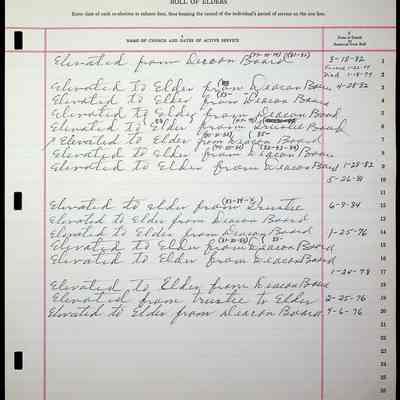 ROLL OF ELDERS
Enter date of each re-election in column four, thus keeping the record of the individual's period of service on the one line.
NAME OF CHURCH AND DATES OF ACTIVE SERVICE
Date of Death or Removal from Roll
Elevated from Deacon Board 3-18-82 1
1-22-79
Died 1-18-79 2
Elevated to Elder from Deacon Board 4-28-82 3
Elevated to Elder from Deacon Board 4
Elevated to Elder from Deacon Board 5
Elevated to Elder from Trustee Board 6
Elevated to Elder from Deacon Board 7
Elevated to Elder from Deacon Board 8
Elevated to Elder from Deacon Board 1-28-82 9
5-26-81 10
11
Elevated to elder from Trustee 6-9-84 12
Elevated to Elder from Deacon Board 13
Elevated to Elder from Deacon Board 1-25-76 14
Elevated to Elder from Deacon Board 15
Elevated to Elder from Deacon Board 16
1-24-78 17
Elevated to Elder from Deacon Board 18
Elevated from Trustee to Elder 2-25-76 19
Elevated to Elder from Deacon Board 4-6-76 20
21
22
23
24
25
26